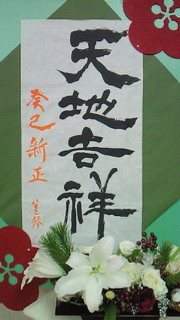 天地吉祥
癸巳新正